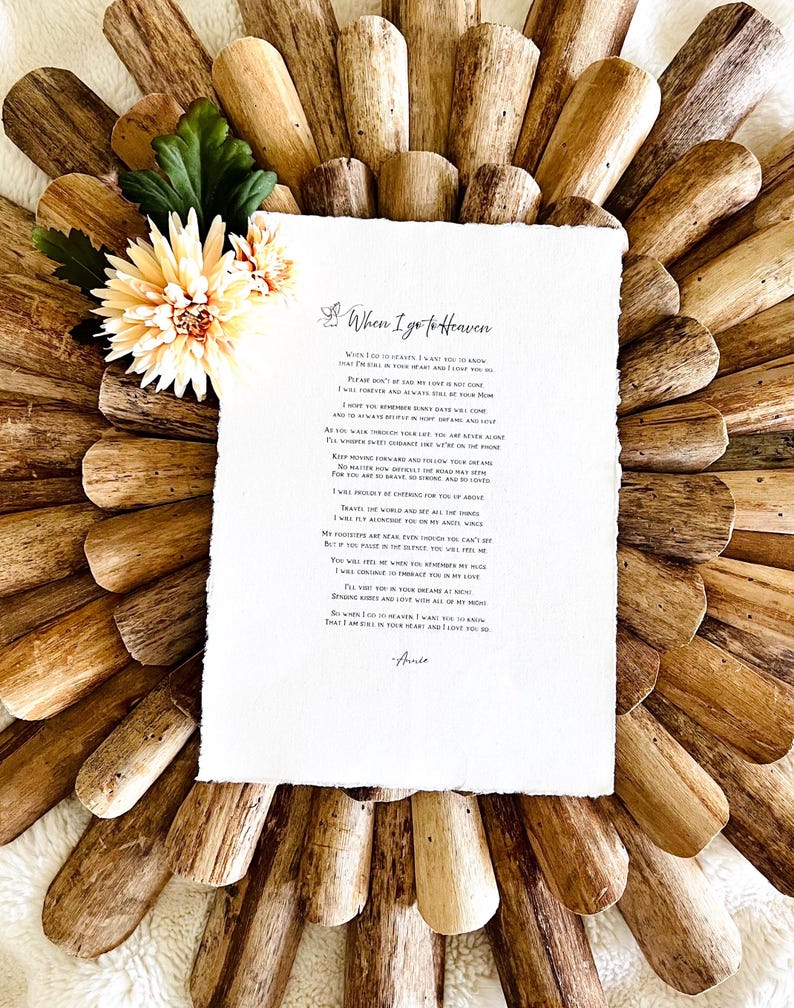 When I go to Heaven
When I go to heaven, I want you to know
that I'm still in your heart and I love you so.
Please don't be sad, my love is not gone.
I will forever and always, still be your Mom
I hope you remember sunny days will come,
and to always believe in hope, dreams, and love.
As you walk through your life, you are never alone
I'll whisper sweet guidance like we're on the phone.
Keep moving forward and follow your dreams.
No matter how difficult the road may seem.
For you are so brave, so strong, and so loved.
I will proudly be cheering for you up above.
Travel the world and see all the things.
I will fly alongside you on my angel wings.
My footsteps are near, even though you can't see.
But if you pause in the silence, you will feel me.
You will feel me when you remember my hugs.
I will continue to embrace you in my love.
I'll visit you in your dreams at night.
Sending kisses and love with all of my might.
So when I go to heaven, I want you to know
That I am still in your heart and I love you so.
-Annie